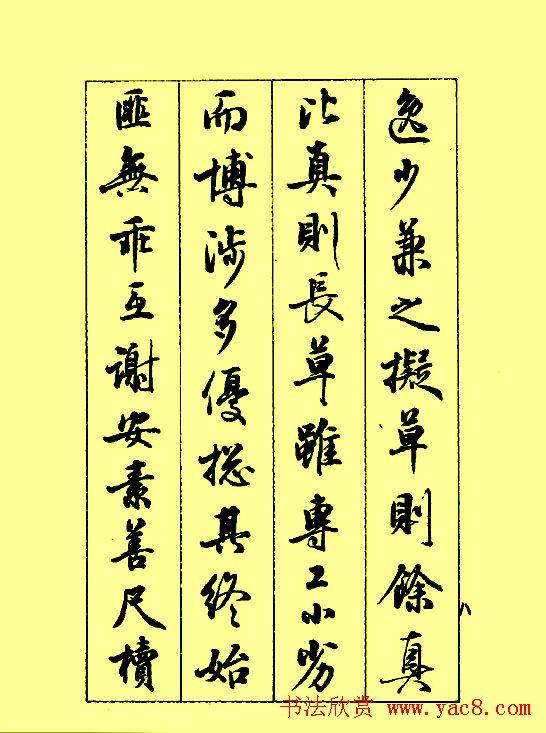 逸少兼之擬草則餘真
比真則長草雖專工小劣
而博涉多優揔其終始
匪無乖互謝安素善尺牘
书法欣赏 www.yac8.com